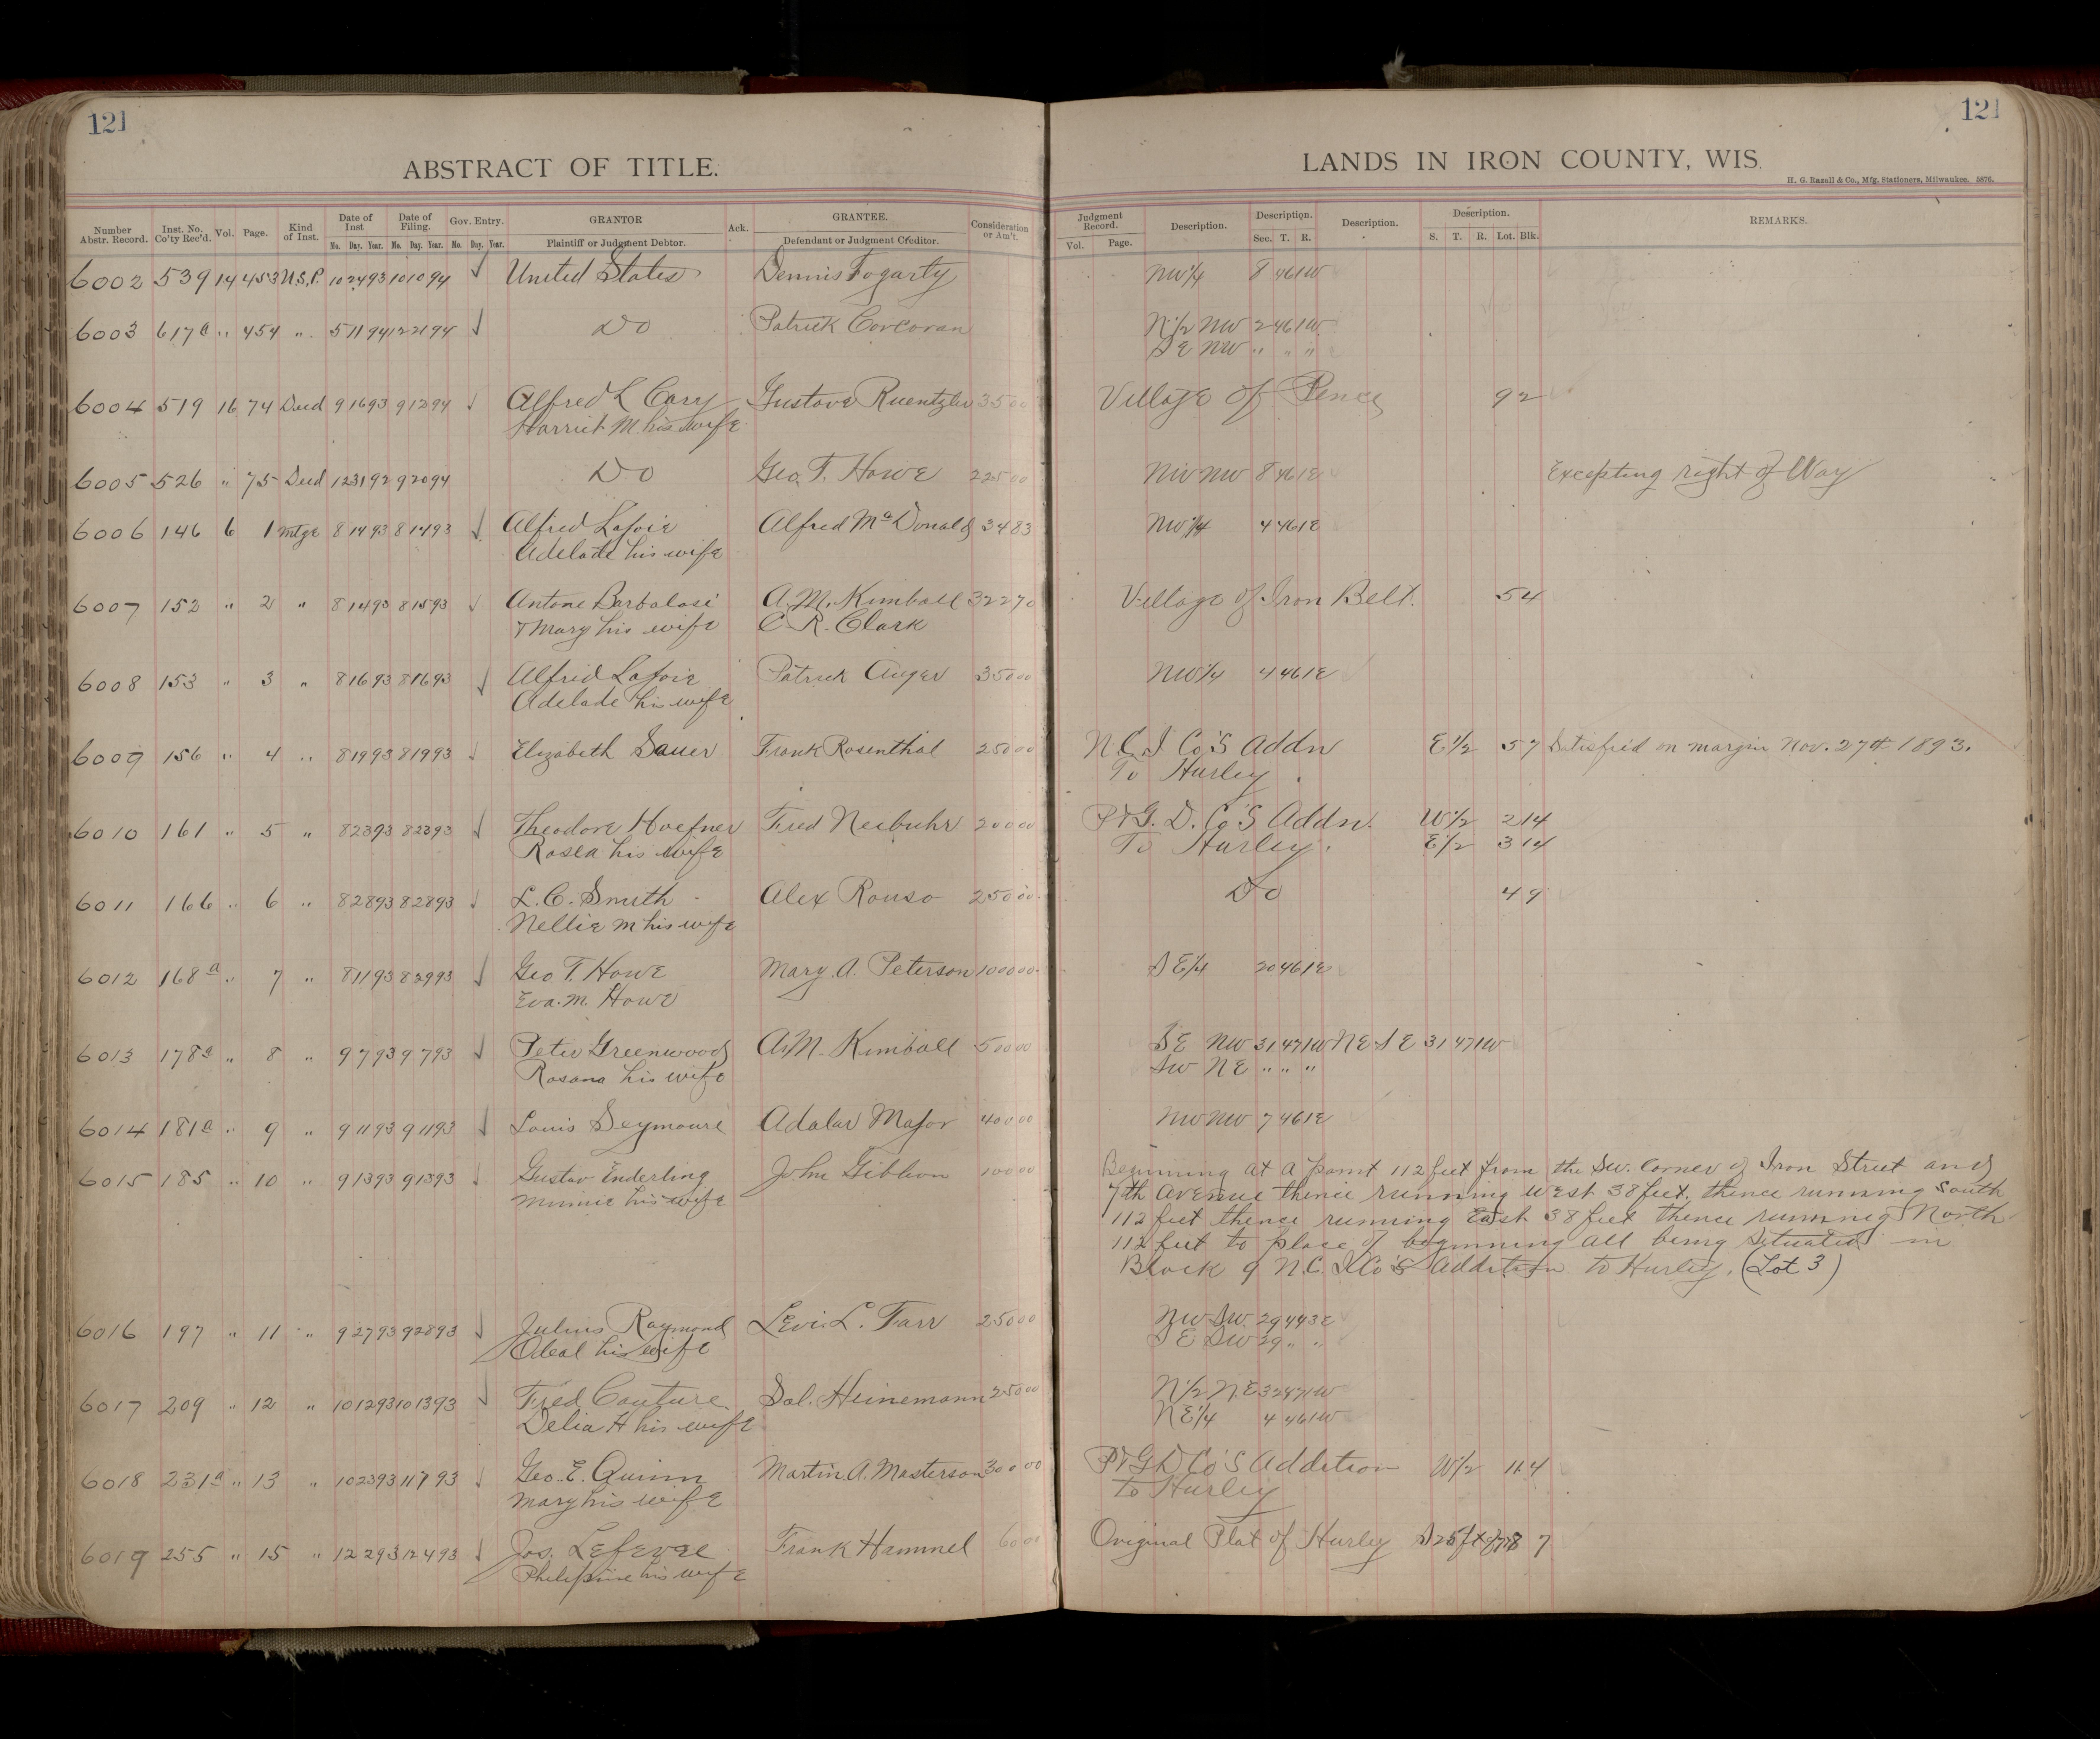 121
121
ABSTRACT OF TITLE.
LANDS IN IRON COUNTY, WIS.
H. G. Razall & Co., Mfg. Stationers, Milwaukee. 5876.
Number Abstr. Record. Inst. No. Co'ty Rec'd. Vol. Page. Kind of Inst. Date of Inst Mo. Day. Year. Date of Filing. Mo. Day. Year. Gov. Entry. Mo. Day. Year. GRANTOR Plaintiff or Judgment Debtor. Ack. GRANTEE. Defendant or Judgment Creditor. Consideration or Am't. Judgment Record. Vol. Page. Description. Description. Sec. T. R. Description. Description. S. T. R. Lot. Blk. REMARKS.
6002 539 14 453 U.S.P. 10 24 93 10 10 94 ✓ United States Dennis Fogarty NW 1/4 8 46 1W
6003 617a " 454 " 5 11 94 12 21 94 ✓ Do Patrick Corcoran N 1/2 NW 2 46 1W
SE NW " " "
6004 519 16 74 Deed 9 16 93 9 12 94 ✓ Alfred L Cary Gustave Ruentzler 35 00 Village of Pence 9 2
Harriet M. his wife
6005 526 " 75 Deed 12 31 92 9 20 94 Do Geo. T. Howe 225 00 NW NW 8 46 1E Excepting right of Way
6006 146 6 1 Mtge 8 14 93 8 14 93 ✓ Alfred Lafoie Alfred McDonald 34 83 NW 1/4 4 46 1E
Adelade his wife
6007 152 " 2 " 8 14 93 8 15 93 ✓ Antone Barbalasi A.M. Kimball 322 70 Village of Iron Belt. 5 4
& Mary his wife C. R. Clark
6008 153 " 3 " 8 16 93 8 16 93 ✓ Alfred Lafoie Patrick Auger 350 00 NW 1/4 4 46 1E
Adelade his wife
6009 156 " 4 " 8 19 93 8 19 93 ✓ Elizabeth Sauer Frank Rosenthal 250 00 N.C.I Co'S Addn E 1/2 5 7 Satisfied on margin Nov. 27th 1893.
To Hurley
6010 161 " 5 " 8 23 93 8 23 93 ✓ Theodore Hoefner Fred Neibuhr 200 00 P&G. D. Co'S Addn. W 1/2 2 14
Rosea his wife To Hurley. E 1/2 3 14
6011 166 " 6 " 8 28 93 8 28 93 ✓ L.C. Smith Alex Rouso 250 00 Do 4 9
Nellie M his wife
6012 168a " 7 " 8 11 93 8 29 93 ✓ Geo T. Howe Mary. A. Peterson 1000 00 SE 1/4 20 46 1E
Eva. M. Howe
6013 178a " 8 " 9 7 93 9 7 93 ✓ Peter Greenwood A.M. Kimball 500 00 SE NW 31 47 1W NE SE 31 47 1W
Rosana his wife SW NE " " "
6014 181a " 9 " 9 11 93 9 11 93 ✓ Louis Seymoure Adalar Major 400 00 NW NW 7 46 1E
6015 185 " 10 " 9 13 93 9 13 93 ✓ Gustav Enderling John Gibbon 100 00 Beginning at a point 112 feet from the SW. Corner of Iron Street and
Minnie his wife 7th Avenue thence running west 38 feet. thence running South
112 feet thence running East 38 feet thence running North
112 feet to place of beginning all being situated in
Block 9 N.C. I Co'S Addition to Hurley. (Lot 3)
6016 197 " 11 " 9 27 93 9 28 93 ✓ Julius Raymond Levi. L. Farr 250 00 NW SW 29 44 3E
Odeal his wife SE SW 29 " "
6017 209 " 12 " 10 12 93 10 13 93 ✓ Fred Couture Sol. Heinemann 250 00 N 1/2 N.E 32 47 1W
Delia H his wife NE 1/4 4 46 1W
6018 231a " 13 " 10 23 93 11 7 93 ✓ Geo. E. Quinn Martin A. Masterson 300 00 P&G D Co'S Addition W 1/2 11 4
Mary his wife to Hurley
6019 255 " 15 " 12 2 93 12 4 93 ✓ Jos. Lefevre Frank Hammel 60 00 Original Plat of Hurley S 25 ft of 7 & 8 7
Philipine his wife